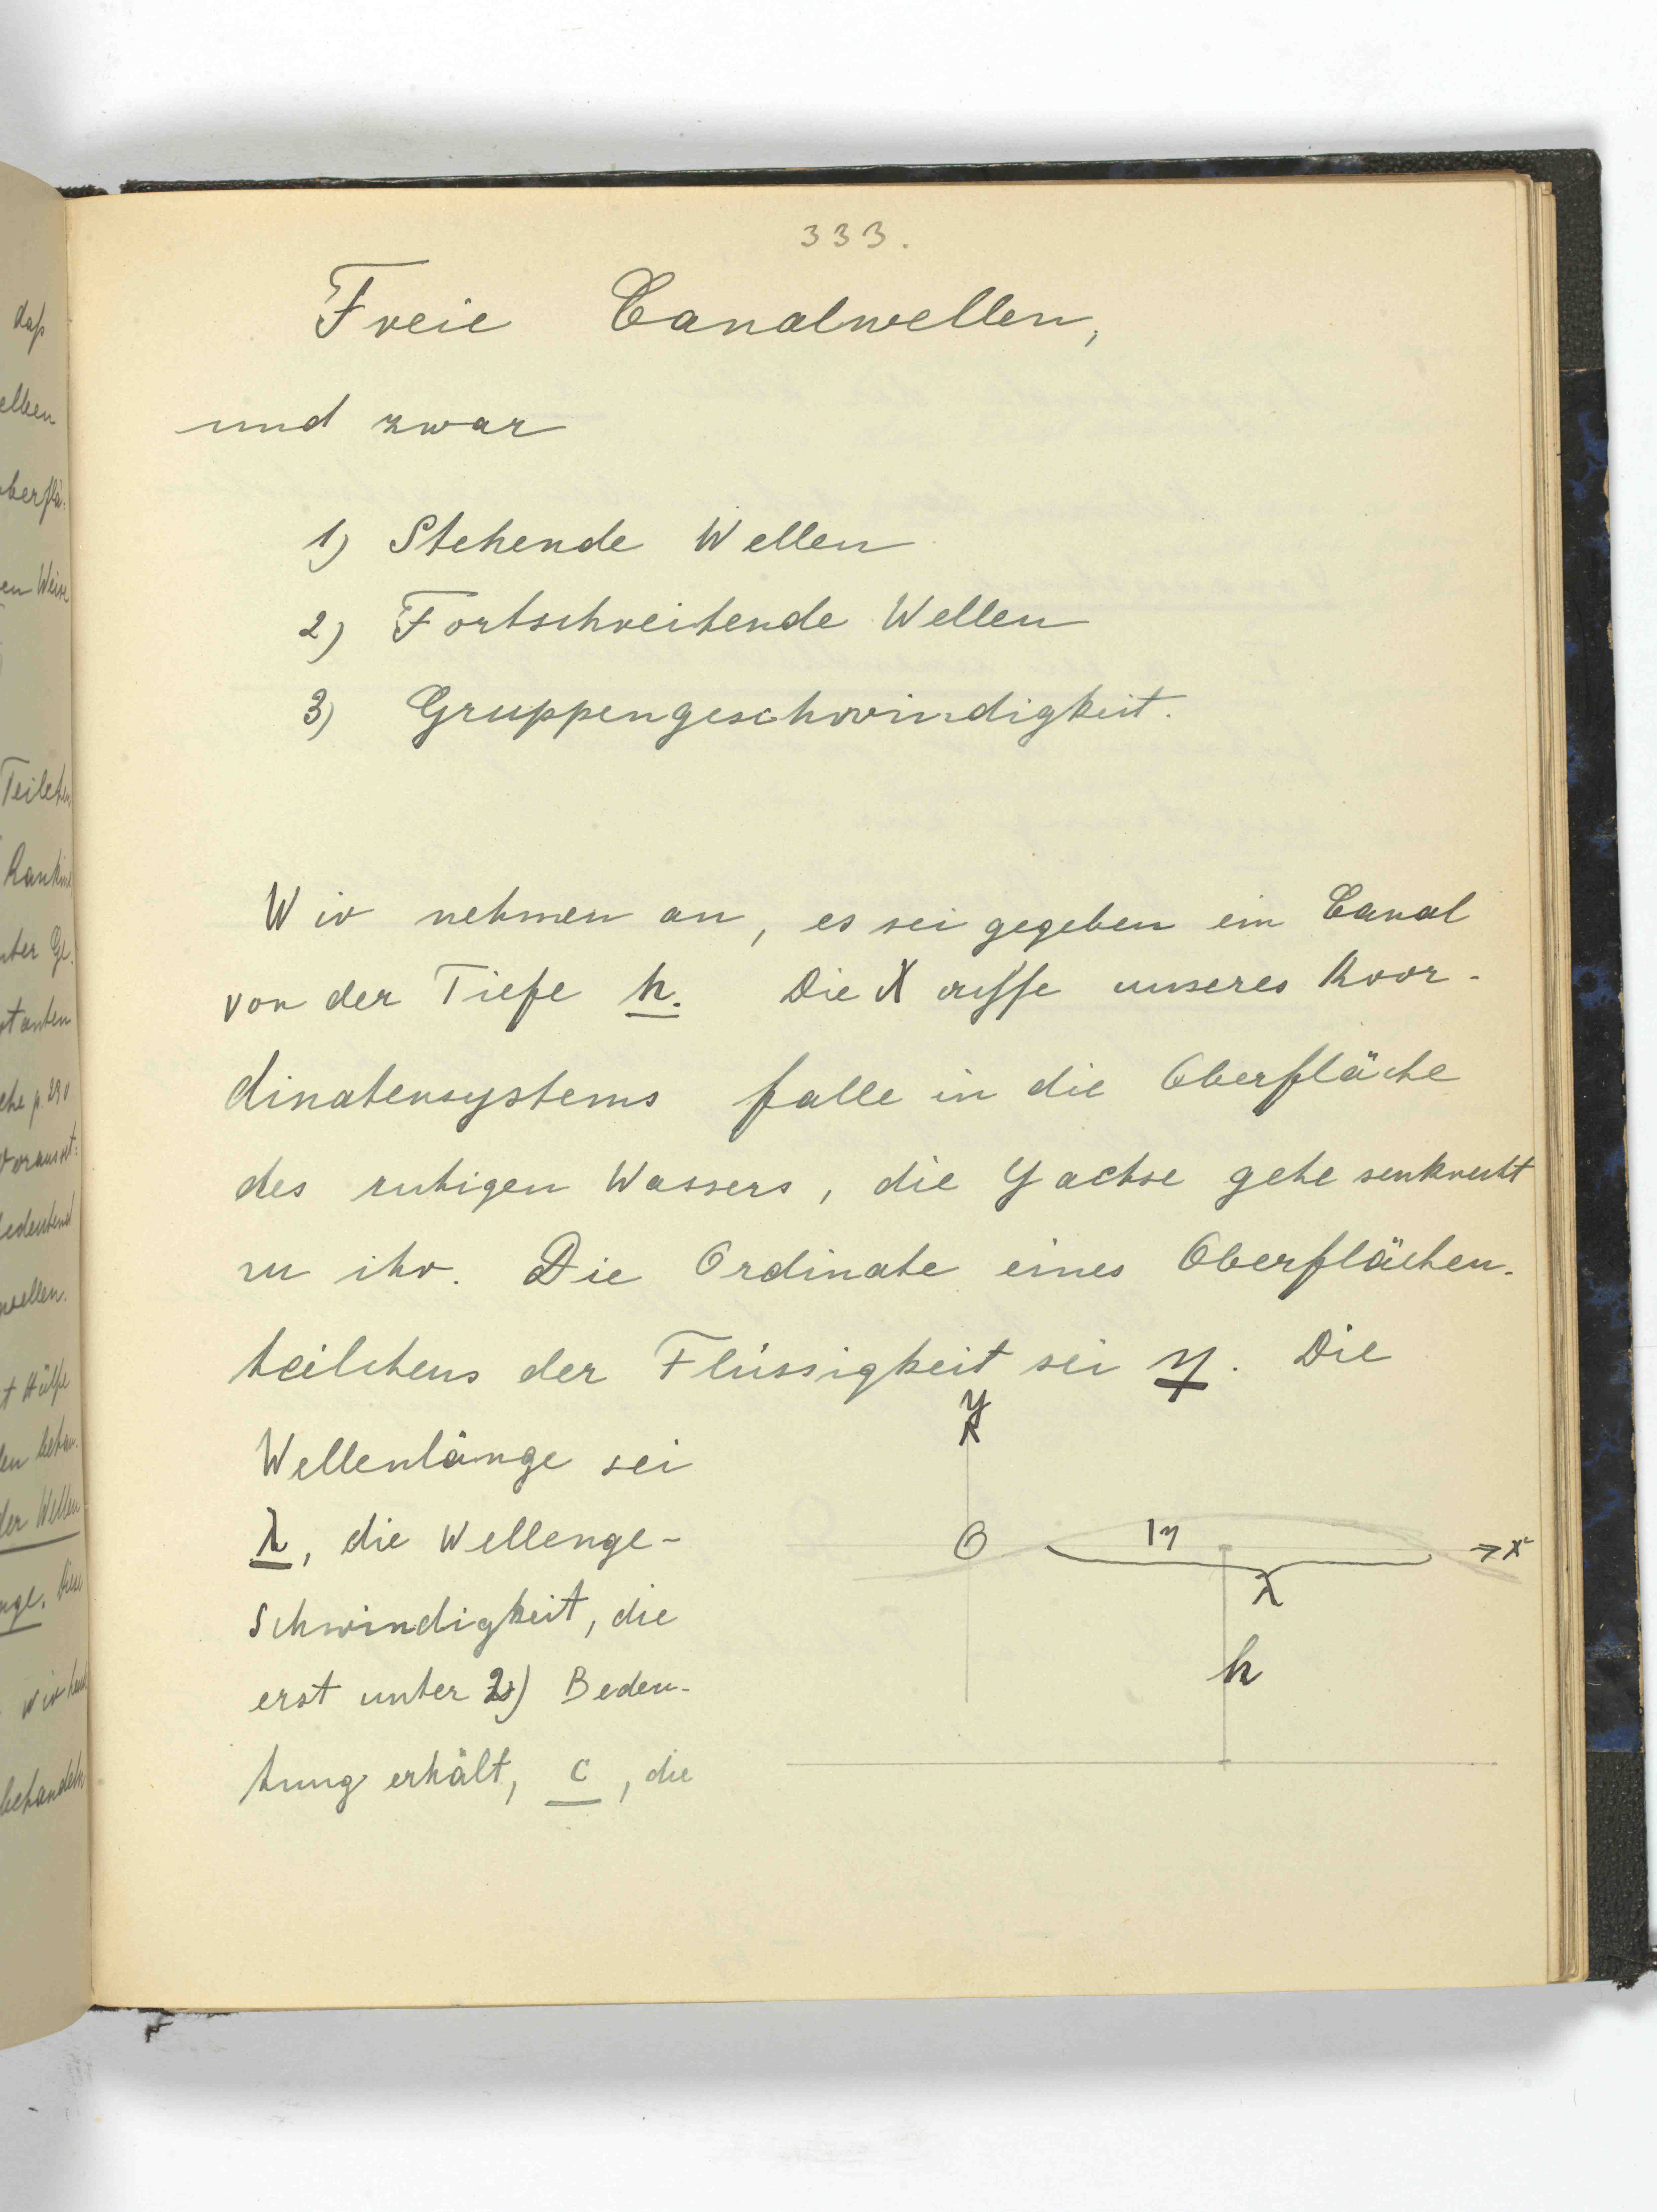 333.
Freie Canalwellen,
und zwar
1) Stehende Wellen
2) Fortschreitende Wellen
3) Gruppengeschwindigkeit.
Wir nehmen an, es sei gegeben ein Canal
von der Tiefe h. Die X unseres Koor-
dinatensystems falle in die Oberfläche
des ruhigen Wassers, die Y achse gehe senkrecht
zu ihr. Die Ordinate eines Oberflächen-
teilchens der Flüssigkeit sei η. Die
Wellenlänge sei
λ, die Wellenge-
schwindigkeit, die
erst unter 2) Bedeu-
tung erhält, c, die
y
O
η
x
λ
h
daß
elben
berflä-
en Weise
Teilchen
nter Ge-
stanten
ehe p. 290
Voranst:
bedeutend
wellen.
t Hülfe
len behan-
der Wellen
nge. Diese
behandeln